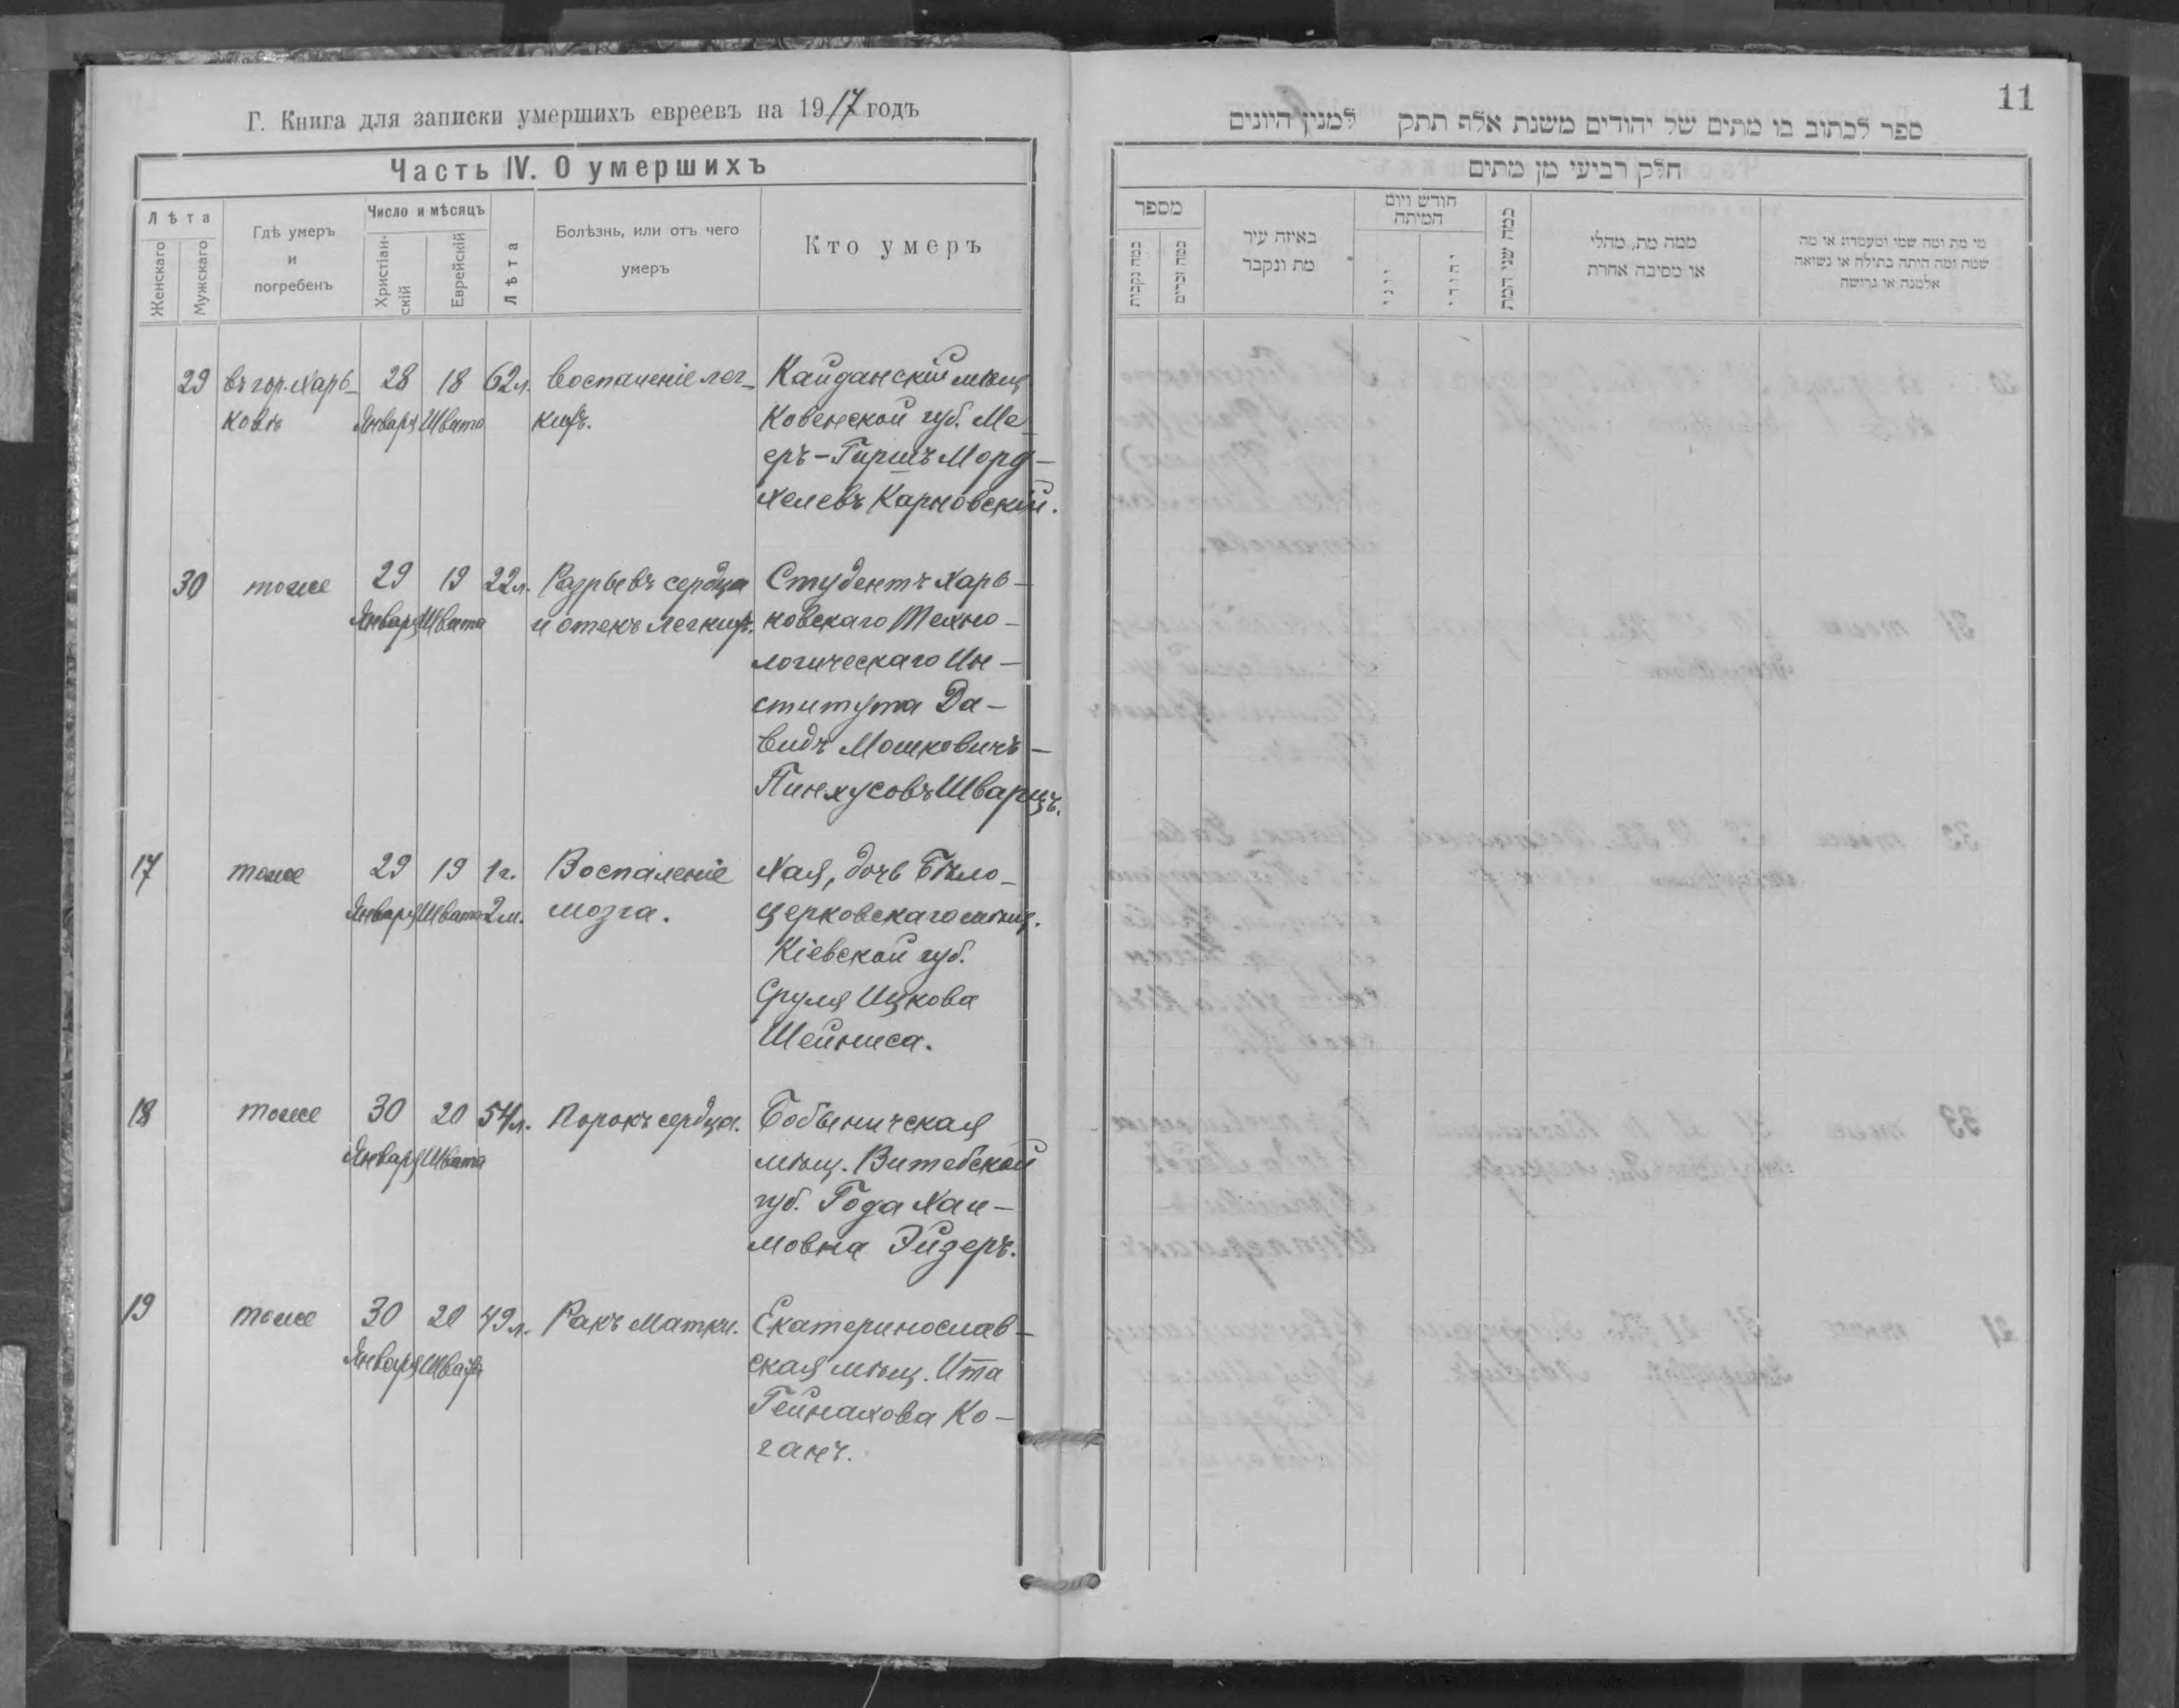 Г. Книга для записки умершихъ евреевъ на 1917 годъ
Часть IV. О умершихъ
Лѣта
Женскаго
Мужскаго
Гдѣ умеръ
и
погребенъ
Число и мѣсяцъ
Христіан-
скій
Еврейскій
Лѣта
Болѣзнь, или отъ чего
умеръ
Кто умеръ
29 въ гор. Харь- 28 18 62 л. Воспаленіе лег- Кайданскій мѣщ.
ковѣ Января Швата кихъ. Ковенской губ. Ме-
еръ-Гиршъ Морд-
хелевъ Карновскій.
30 тоже 29 19 22 л. Разрывъ сердца Студентъ Харь-
Января Швата и отекъ легкихъ. ковскаго Техно-
логическаго Ин-
ститута Да-
видъ Мошковичъ-
Пинхусовъ Шварцъ.
17 тоже 29 19 1 г. Воспаленіе Хая, дочь Бѣло-
Января Швата 2 м. мозга. церковскаго мѣщ.
Кіевской губ.
Сруля Ицкова
Шейниса.
18 тоже 30 20 54 л. Порокъ сердца. Бобыничская
Января Швата мѣщ. Витебской
губ. Года Хаи-
мовна Эйзеръ.
19 тоже 30 20 49 л. Ракъ матки. Екатеринослав-
Января Швата ская мѣщ. Ита
Гейнахова Ко-
ганъ.
11
ספר לכתוב בו מתים של יהודים משנת אלף תתק למנין היונים
חלק רביעי מן מתים
מספר
כמה נקבות
כמה זכרים
באיזה עיר
מת ונקבר
חודש ויום
המיתה
יוני
יהודי
כמה שני המת
ממה מת, מחלי
או מסיבה אחרת
מי מת ומה שמו ומעמדו או מה
שמה ומה היתה בתולה או נשואה
אלמנה או גרושה